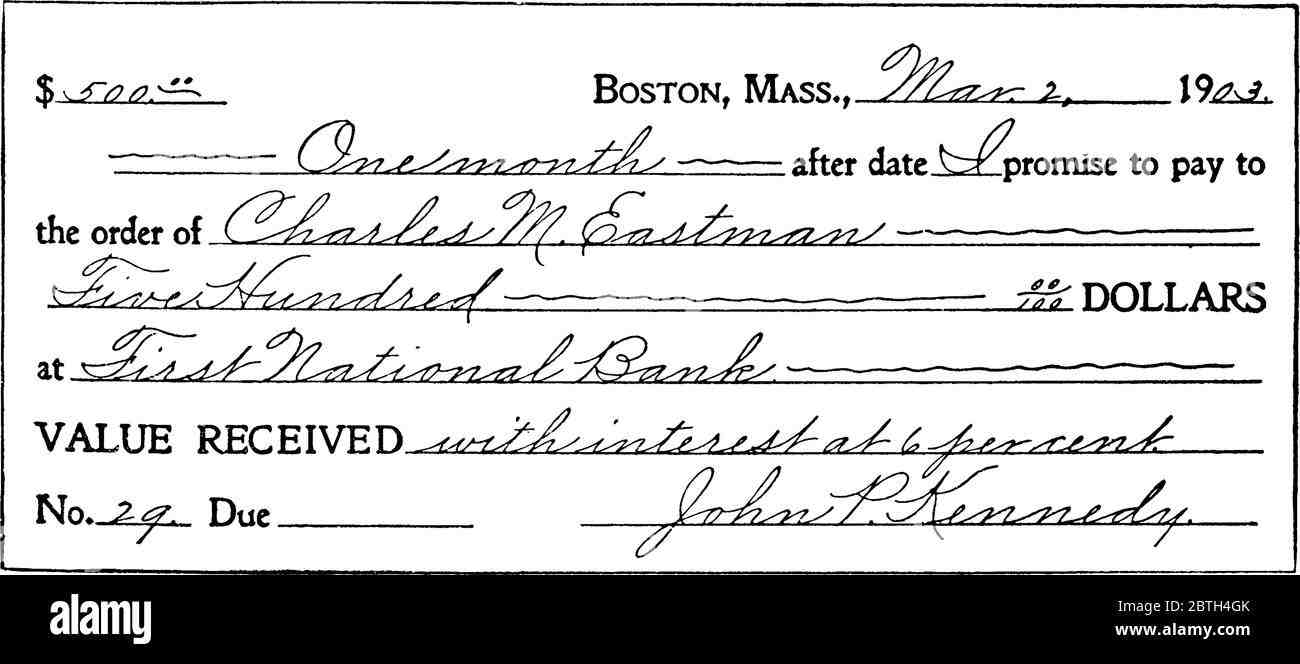 $ 500.00 BOSTON, MASS., Mar. 2, 1903.
One month after date I promise to pay to
the order of Charles M. Eastman
Five Hundred 00/100 DOLLARS
at First National Bank
VALUE RECEIVED with interest at 6 per cent.
No. 29. Due
John P. Kennedy.
alamy
Image ID: 2BTH4GK
www.alamy.com